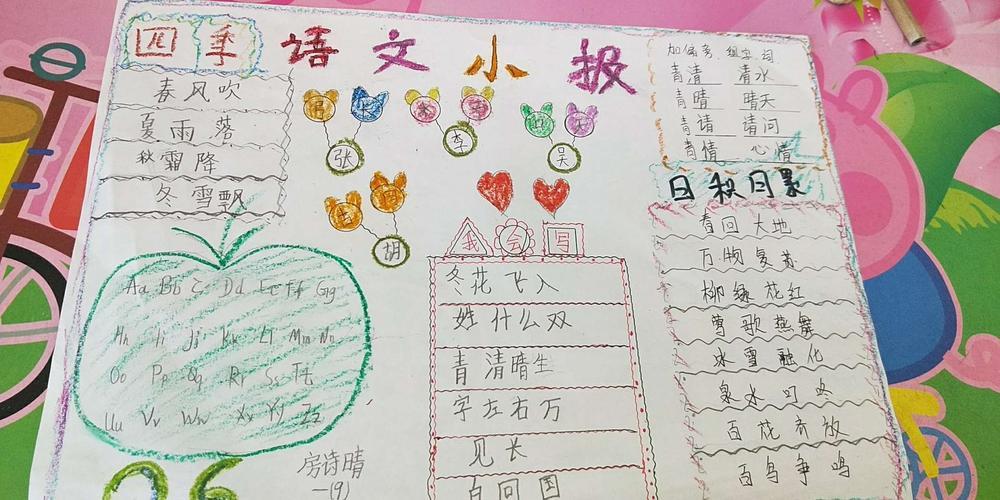 四季
语文小报
春风吹
夏雨落
秋霜降
冬雪飘
弓 长
张
木 子
李
口 天
吴
古 月
胡
加偏旁、组字、词
青清 清水
青晴 晴天
青请 请问
青情 心情
日积月累
春回大地
万物复苏
柳绿花红
莺歌燕舞
冰雪融化
泉水叮咚
百花齐放
百鸟争鸣
我会写
冬花飞入
姓什么双
青清晴生
字左右万
见长
白回国
Aa Bb Cc Dd Ee Ff Gg
Hh Ii Jj Kk Ll Mm Nn
Oo Pp Qq Rr Ss Tt
Uu Vv Ww Xx Yy Zz
房诗晴
一(9)
26